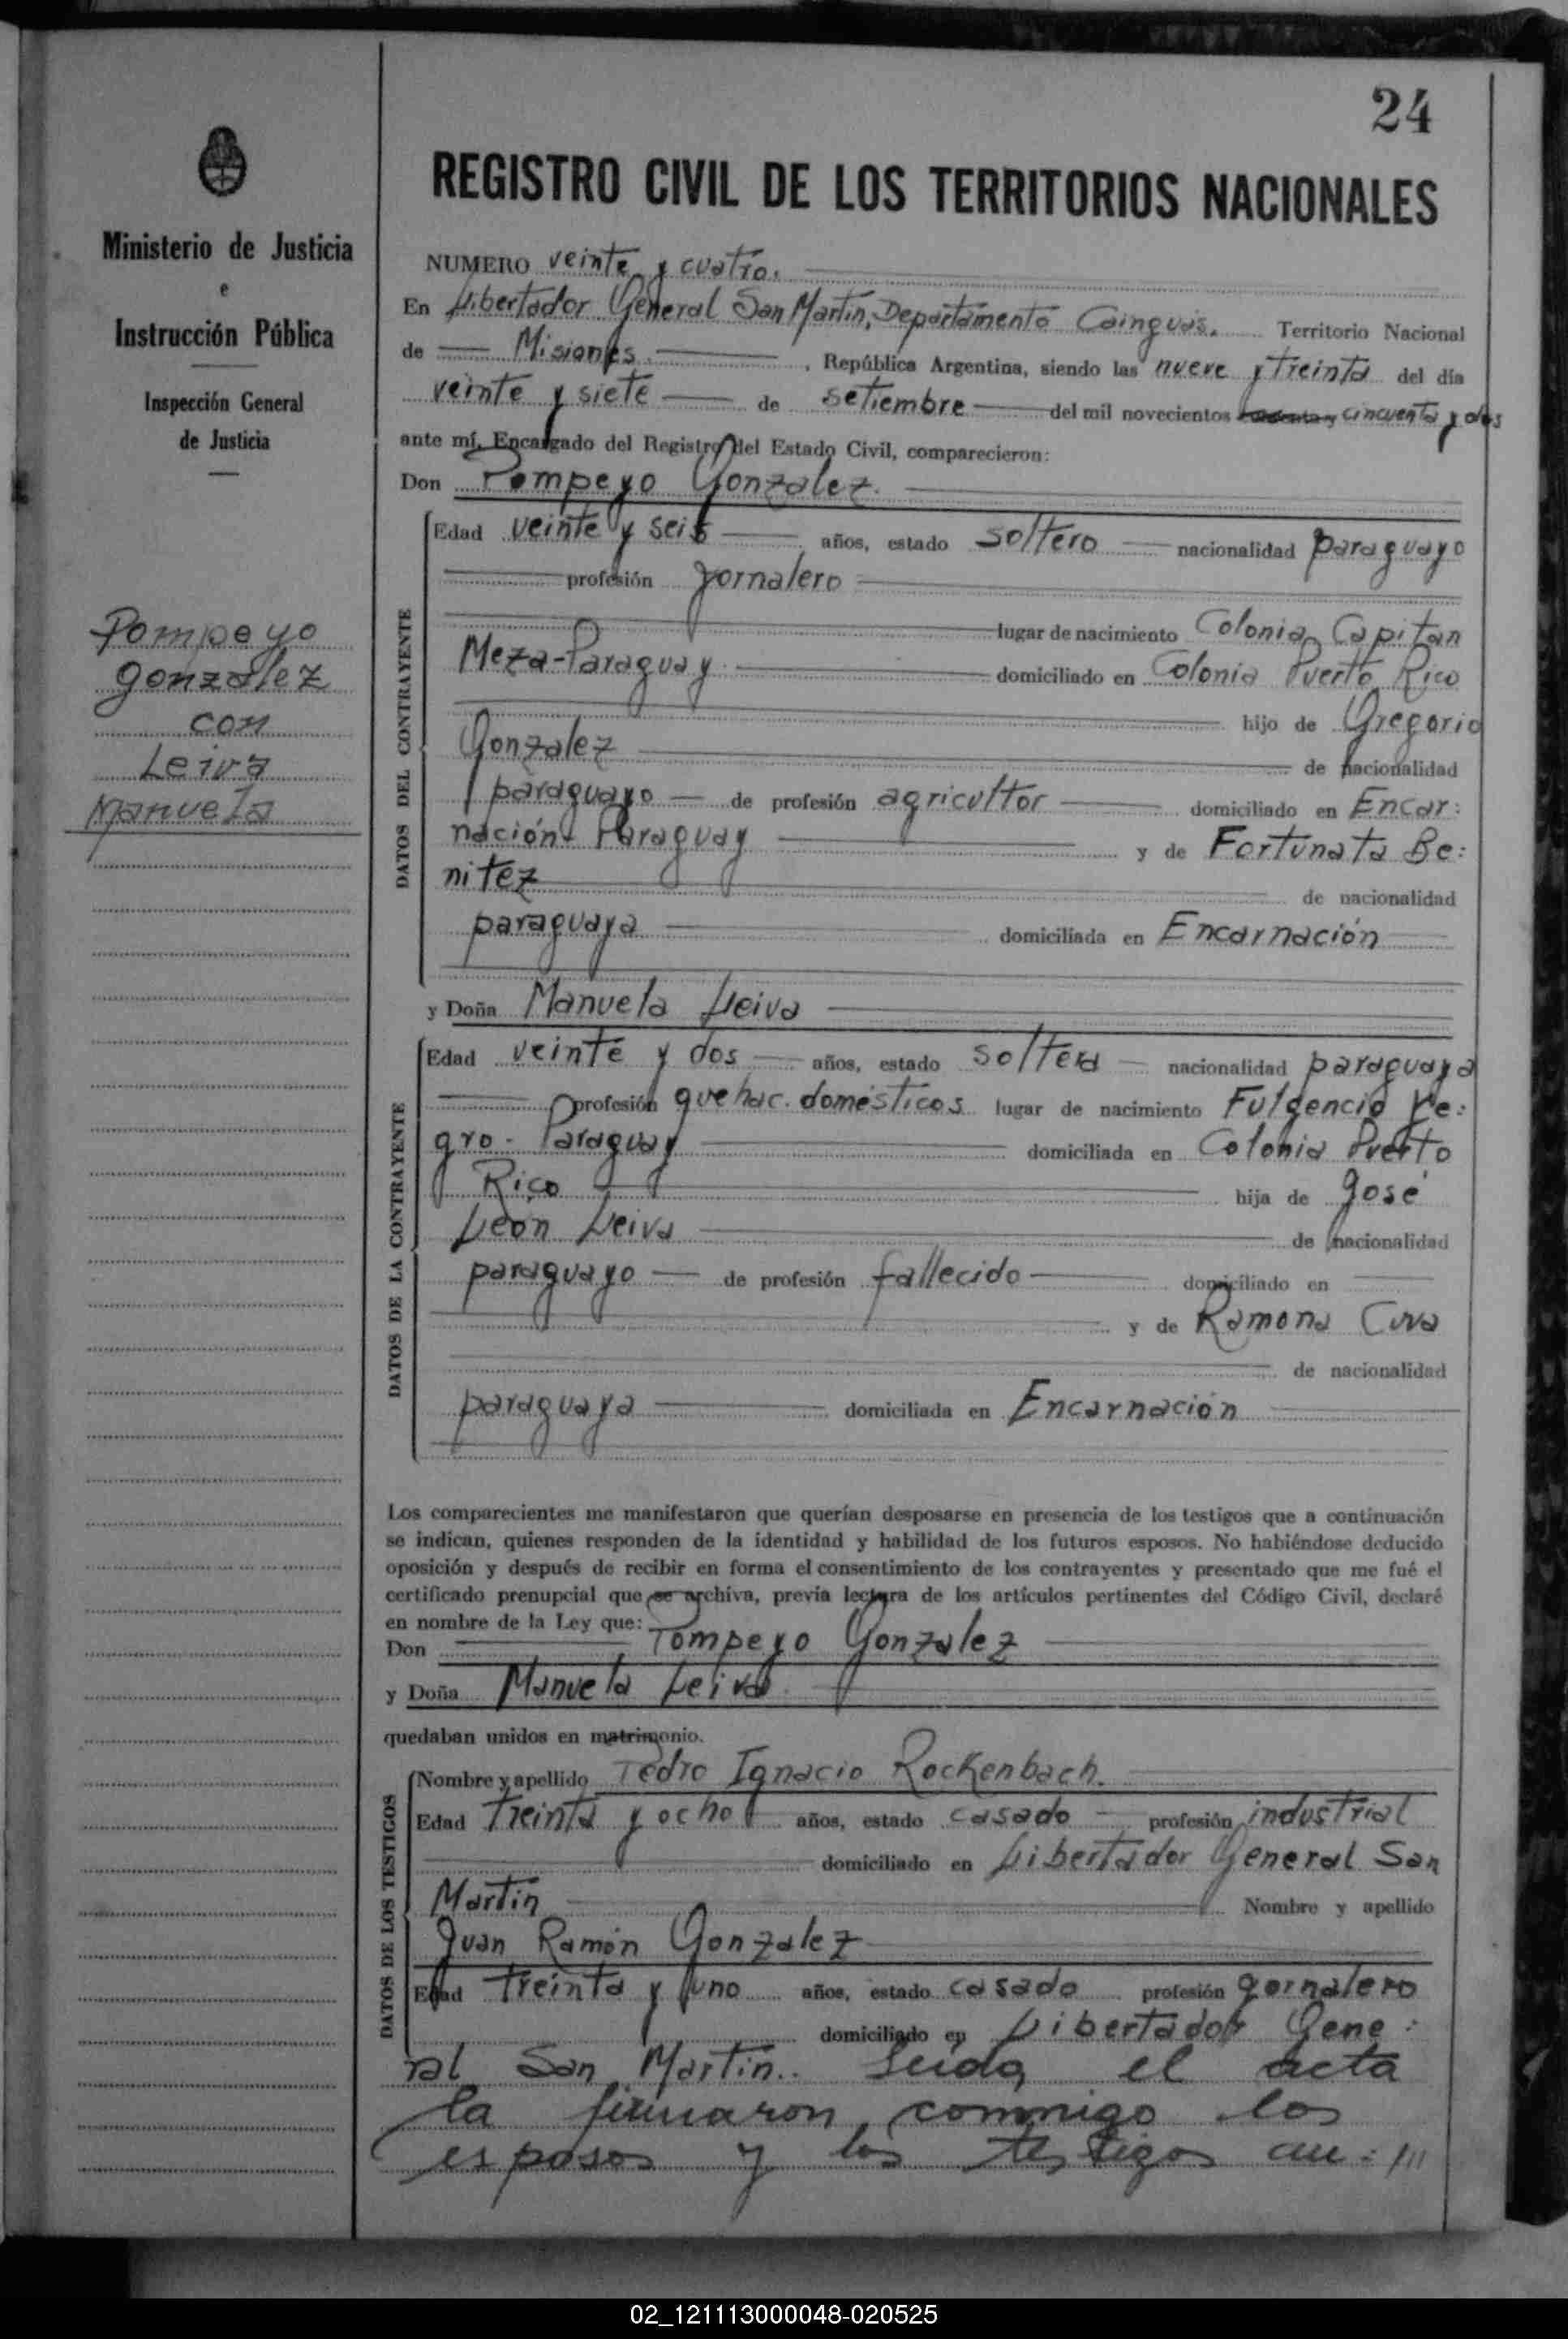 24
REGISTRO CIVIL DE LOS TERRITORIOS NACIONALES
Ministerio de Justicia
e
Instrucción Pública
Inspección General
de Justicia
Pompeyo
Gonzalez
con
Leiva
Manuela
NUMERO veinte y cuatro.
En Libertador General San Martín, Departamento Cainguás. Territorio Nacional
de Misiones, República Argentina, siendo las nueve y treinta del día
veinte y siete de setiembre del mil novecientos cincuenta y dos
ante mí, Encargado del Registro del Estado Civil, comparecieron:
Don Pompeyo Gonzalez.
DATOS DEL CONTRAYENTE
Edad veinte y seis años, estado soltero nacionalidad paraguayo
profesión jornalero
lugar de nacimiento Colonia Capitan
Meza-Paraguay domiciliado en Colonia Puerto Rico
hijo de Gregorio
Gonzalez de nacionalidad
paraguayo de profesión agricultor domiciliado en Encar:
nación- Paraguay y de Fortunata Be:
nitez de nacionalidad
paraguaya domiciliada en Encarnación
y Doña Manuela Leiva
DATOS DE LA CONTRAYENTE
Edad veinte y dos años, estado soltera nacionalidad paraguaya
profesión quehac. domésticos lugar de nacimiento Fulgencio Ye:
gro- Paraguay domiciliada en Colonia Puerto
Rico hija de José
León Leiva de nacionalidad
paraguayo de profesión fallecido domiciliado en
y de Ramona
de nacionalidad
paraguaya domiciliada en Encarnación
Los comparecientes me manifestaron que querían desposarse en presencia de los testigos que a continuación
se indican, quienes responden de la identidad y habilidad de los futuros esposos. No habiéndose deducido
oposición y después de recibir en forma el consentimiento de los contrayentes y presentado que me fué el
certificado prenupcial que se archiva, previa lectura de los artículos pertinentes del Código Civil, declaré
en nombre de la Ley que:
Don Pompeyo Gonzalez
y Doña Manuela Leiva.
quedaban unidos en matrimonio.
DATOS DE LOS TESTIGOS
Nombre y apellido Pedro Ignacio Rockenbach.
Edad treinta y ocho años, estado casado profesión industrial
domiciliado en Libertador General San
Martín Nombre y apellido
Juan Ramón Gonzalez
Edad treinta y uno años, estado casado profesión jornalero
domiciliado en Libertador Gene:
ral San Martín.. Leída el acta
la firmaron conmigo los
esposos y los testigos an: ///
02_121113000048-020525